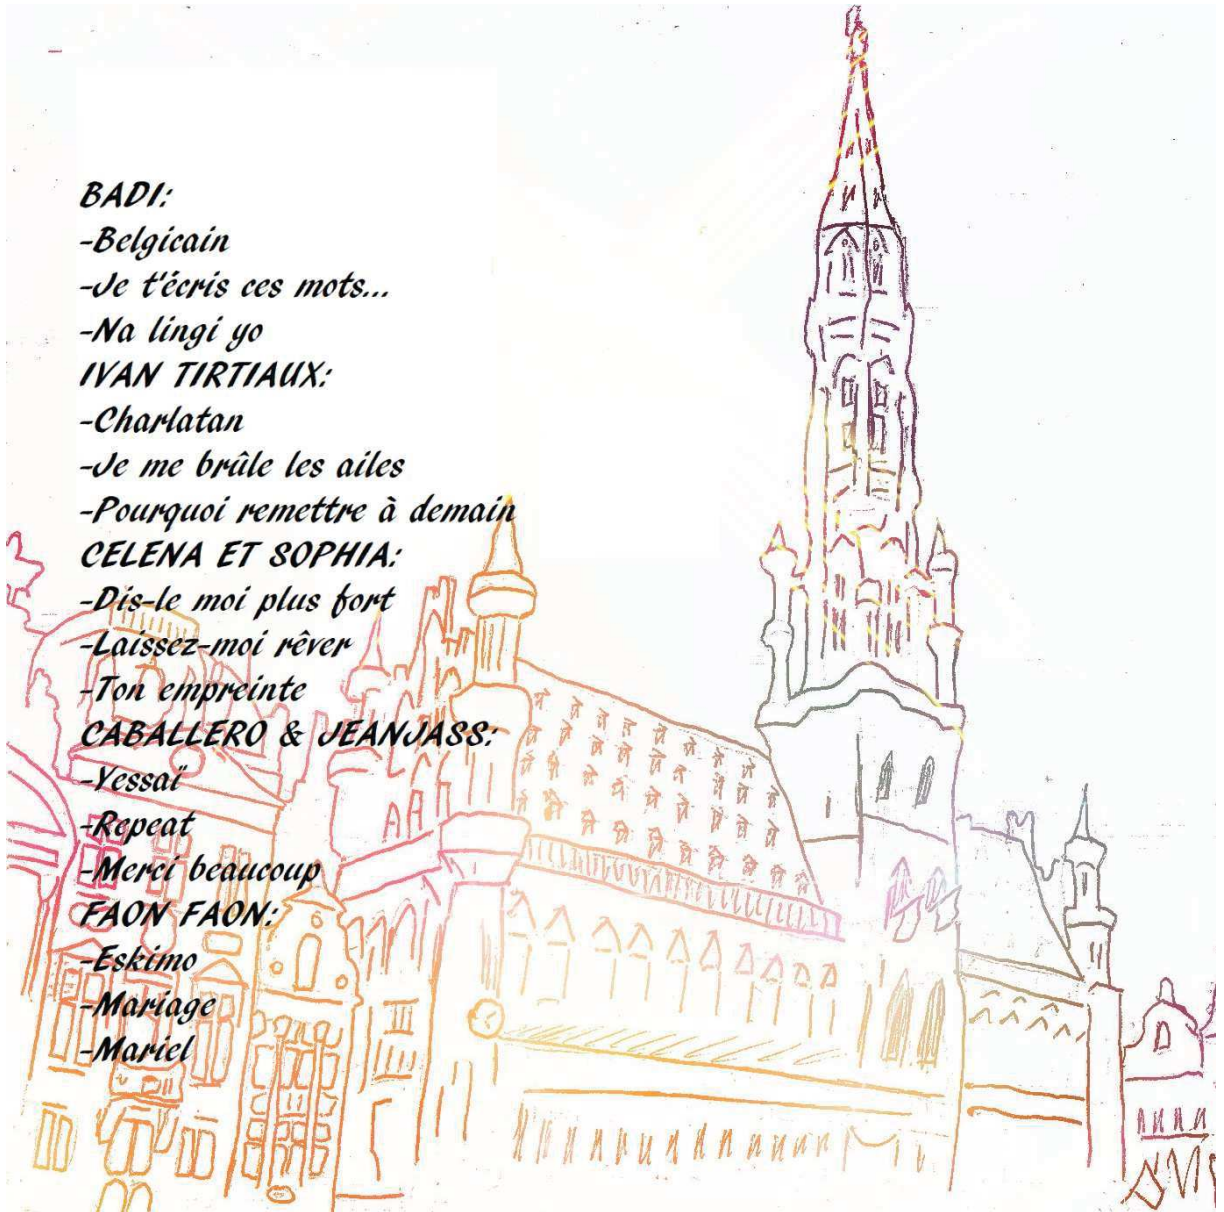 BADI:
-Belgicain
-Je t'écris ces mots...
-Na lingi yo
IVAN TIRTIAUX:
-Charlatan
-Je me brûle les ailes
-Pourquoi remettre à demain
CELENA ET SOPHIA:
-Dis-le moi plus fort
-Laissez-moi rêver
-Ton empreinte
CABALLERO & JEANJASS:
-Yessaï
-Repeat
-Merci beaucoup
FAON FAON:
-Eskimo
-Mariage
-Mariel